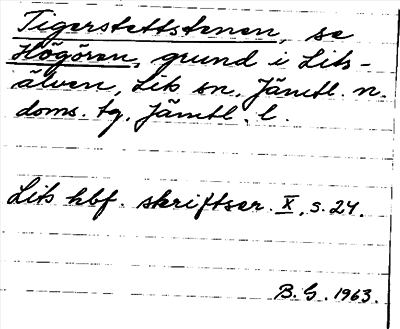 Tigerstettstenen, se
Högören, grund i Lits-
älven, Lits sn, Jämtl. n.
doms. tg, Jämtl. l.
Lits hbf. skriftser. X, s. 24.
B. G. 1963.